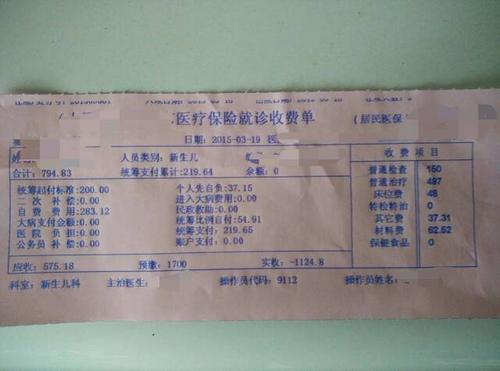 医疗保险就诊收费单 (居民医保
日期:2015-03-19
人员类别:新生儿 收 费 项 目
合计:794.83 统筹支付累计:219.64 余额:0
统筹起付标准:200.00 个人先自负:37.15 普通检查 150
二 次 补 偿:0.00 进入大病费用:0.00 普通治疗 497
自 费 费 用:283.12 民政救助:0.00 床位费 48
大病支付金额:0.00 统筹比例自付:54.91 特检特治 0
医 院 负 担:0.00 统筹支付:219.65 其它费 37.31
公务员 补 偿:0.00 账户支付:0.00 材料费 62.52
保健食品 0
应收:575.18 预缴:1700 实收:-1124.8
科室:新生儿科 主治医生: 操作员代码:9112 操作员姓名: